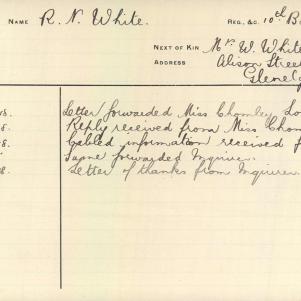 NAME R. N. White. REG., &c. 10th B
NEXT OF KIN Mr W. White
ADDRESS Alison Stree
Glenelg
8. Letter forwarded Miss Chomley Lo
8. Reply received from Miss Chom
8 Cabled information received f
Same forwarded Inquirer.
8. Letter of thanks from Inquirer